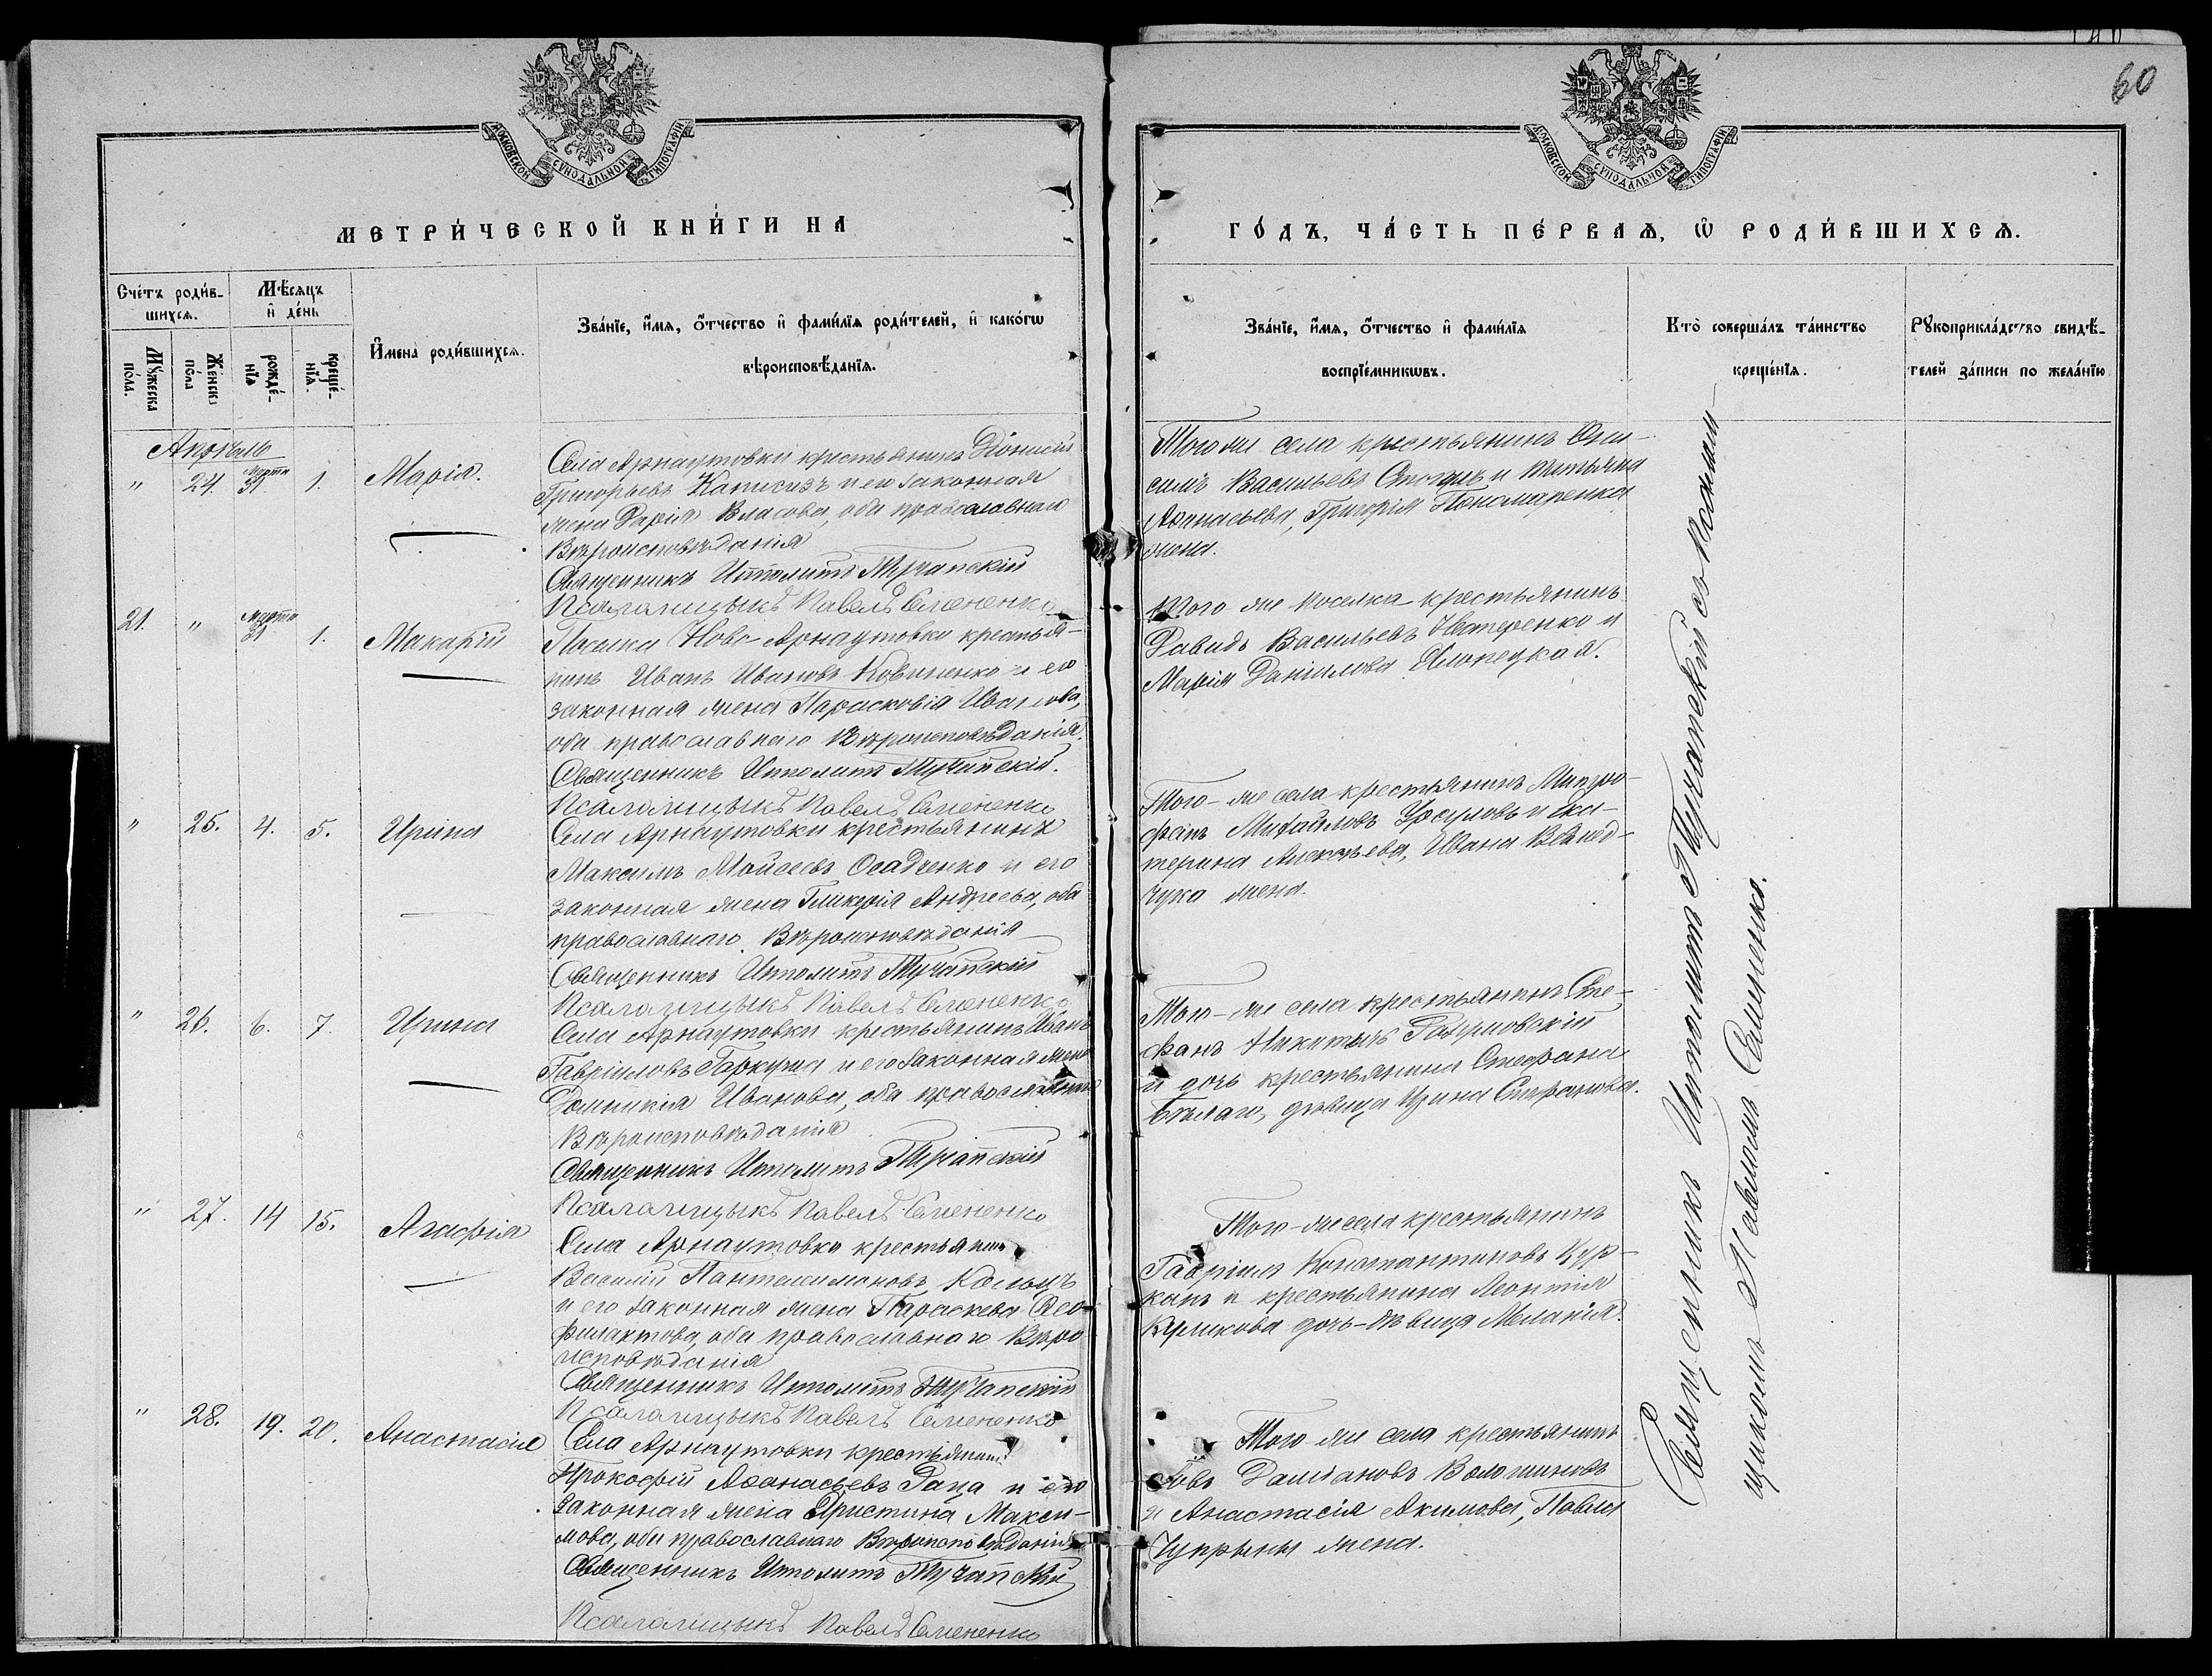 60
МОСКОВСКОЙ СѴНОДАЛЬНОЙ ТИПОГРАФІИ
МОСКОВСКОЙ СѴНОДАЛЬНОЙ ТИПОГРАФІИ
МЕТРИ́ЧЕСКОЙ КНИ́ГИ НА
ГО́ДЪ, ЧА́СТЬ ПЕ́РВАѦ, Ѡ РОДИ́ВШИХСѦ.
Сче́тъ роди́в-
шихсѧ.
Мꙋ́жеска по́ла.
Же́нска по́ла
Мѣ́сѧцъ
и҆ де́нь
рожде́-
нїѧ
креще́-
нїѧ.
И҆мена̀ роди́вшихсѧ.
Зва́нїе, и҆́мѧ, ѻ҆́тчество и҆ фами́лїѧ роди́телей, и҆ како́гѡ
вѣроисповѣ́данїѧ.
Зва́нїе, и҆́мѧ, ѻ҆́тчество и҆ фами́лїѧ
воспрїе́мникѡвъ.
Кто̀ соверша́лъ та́инство
креще́нїѧ.
Рꙋкоприкла́дство свидѣ́-
телей за́писи по жела́нїю
Апрѣль
" 24. Марта 31 1. Марія.
Села Арнаутовки крестьянинъ Діонисій
Григорьевъ и его законная
жена Дарія Власова, оба православнаго
Вѣроисповѣданія
Священникъ Ипполитъ Тучапскій
Псаломщыкъ Павелъ Семененко
Того же села крестьянинъ Они-
симъ Васильевъ и Татьяна
Аѳанасьева, Григорія Пономаренка
жена.
21. " Марта 31 1. Макарій
Поселка Ново-Арнаутовки крестья-
нинъ Иванъ Ивановъ и его
законная жена Парасковія Иванова,
оба православнаго Вѣроисповѣданія.
Священникъ Ипполитъ Тучапскій.
Псаломщыкъ Павелъ Семененко
Того же поселка крестьянинъ
Давидъ Васильевъ и
Марія Даніилова
" 25. 4. 5. Ирина
Села Арнаутовки крестьянинъ
Максимъ Мойсеевъ Осадченко и его
законная жена Гликерія Андреева, оба
православнаго Вѣроисповѣданія
Священникъ Ипполитъ Тучапскій
Псаломщыкъ Павелъ Семененко
Того-же села крестьянинъ Митро-
фанъ Михайловъ Урсуловъ и Ека-
терина Алексѣева, Ивана
чука жена.
" 26. 6. 7. Ирина
Села Арнаутовки крестьянинъ Иванъ
Гавріиловъ Гаркуша и его законная жена
Домникія Иванова, оба православнаго
Вѣроисповѣданія
Священникъ Ипполитъ Тучапскій
Псаломщыкъ Павелъ Семененко
Того-же села крестьянинъ Сте-
фанъ Никитинъ
и дочь крестьянина Стефана
Бѣлаго, дѣвица Ирина Стефанова.
" 27. 14 15. Агафія
Села Арнаутовки крестьянинъ
Василій Пантелеимоновъ
и его законная жена Параскева Ѳео-
филактова, оба православнаго Вѣро
исповѣданія
Священникъ Ипполитъ Тучапскій
Псаломщыкъ Павелъ Семененко
Того-же села крестьянинъ
Гавріилъ Константиновъ Цур-
канъ и крестьянина Леонтія
Куликова дочь-дѣвица Меланія.
" 28. 19. 20. Анастасія
Села Арнаутовки крестьянинъ
Прокофій Аѳанасьевъ Раца и его
законная жена Христина Макси-
мова, оба православнаго Вѣроисповѣданія
Священникъ Ипполитъ Тучапскій
Псаломщыкъ Павелъ Семененко
Того же села крестьянинъ
Іовъ Даміановъ
и Анастасія Акимова, Павла
Чупрыны жена.
Священникъ Ипполитъ Тучапскій съ Псалом-
щикомъ Павломъ Семененко.